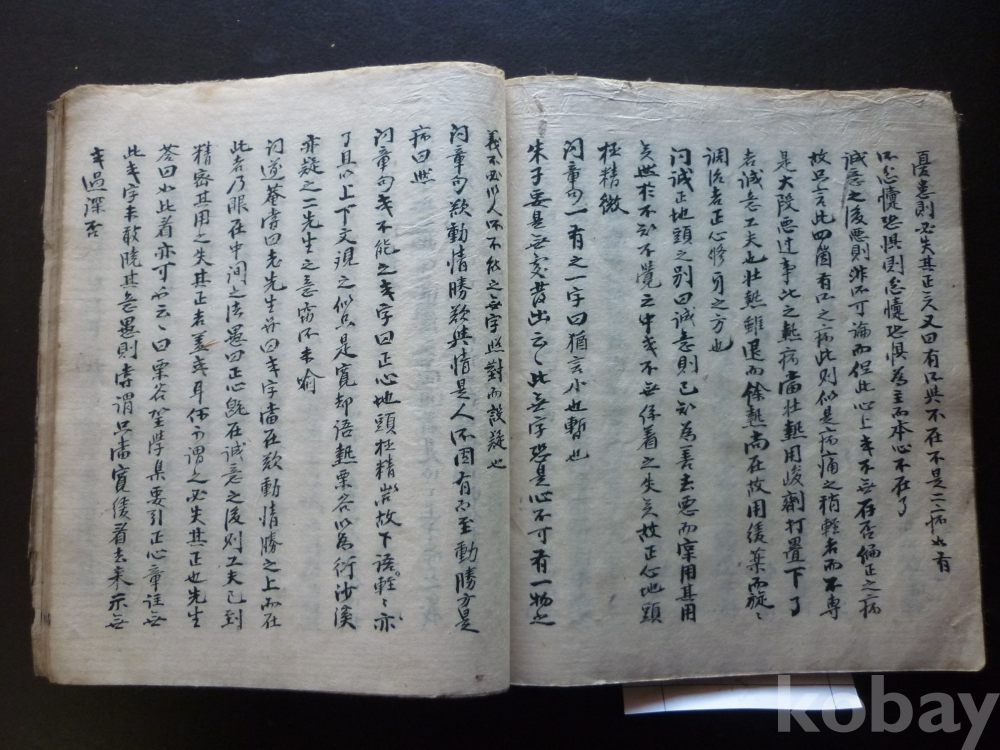 憂患則必失其正云又曰有所與不在不是二病必有
所忿懥恐惧則忿懥恐惧為主而本心不在了
誠意之後惡則非所可論而但此心上或不無存否偏正之病
故只言此四箇有所之病此則似是病痛之稍輕者而不專
是大段惡过事比之熱病當壯熱用峻劑打疊下了
者誠意工夫也壯熱雖退而餘熱尚在故用緩藥而旋〻
調治者正心修身之方也
问誠正地頭之别曰誠意則已知為善去惡而實用其用
矣然於不知不覺之中或不無係着之失矣故正心地頭
極精微
问章句一有之一字曰猶言小也暫也
朱子要是無實昔出云〻此無字恐是心不可有一物之
義不必以人所不能之無字照對而設疑也
问章句欲動情勝欲與情是人所固有而至動勝方是
病曰然
问章句或不能之或字曰正心地頭極精密故下語輕〻亦
了且以上下文現之似只是寬却語熱栗谷以為衍沙溪
亦疑之二先生之意竊所未喻
问遂菴嘗曰老先生亦曰或字當在欲動情勝之上而在
此者乃眼在中间之法愚曰正心旣在誠意之後则工夫已到
精密其用之失其正者盖或耳何可謂之必失其正也先生
荅曰如此看亦可而云〻曰栗谷聖學集要引正心章註無
此或字未敢曉其意愚則嘗謂只當寬緩看去来示無
或過深否
kobay